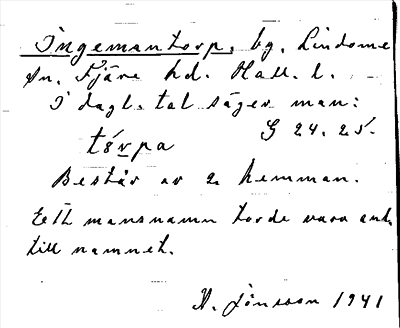 Ingemantorp, bg, Lindome
sn. Fjäre hd. Hall. l.
I dagl. tal säges man:
G 24. 25.
Består av 2 hemman.
Ett mansnamn torde vara anl.
till namnet.
A. Jönsson 1941